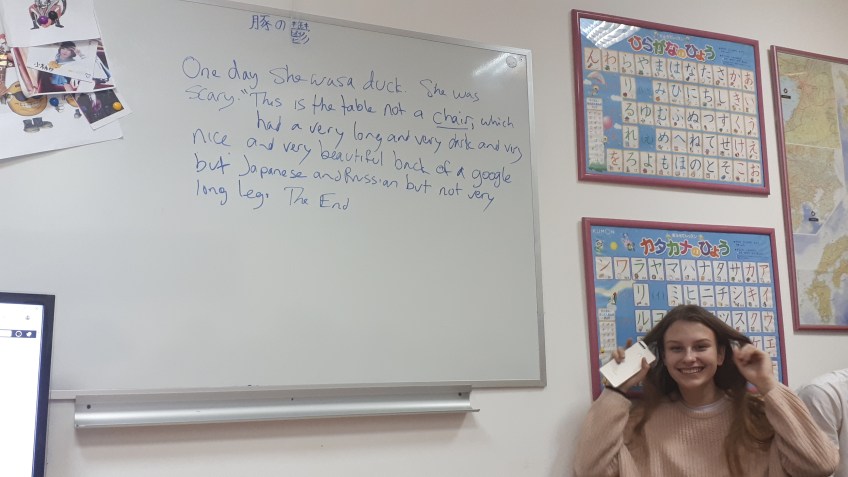 豚の
One day She was a duck. She was
scary. "This is the table not a chair, which
had a very long and very and very
nice and very beautiful back of a google
but Japanese and Russian but not very
long Leg. The End
ひらがなのひょう
ん わ ら や ま は な た さ か あ
り み ひ に ち し き い
る ゆ む ふ ぬ つ す く う
れ め へ ね て せ け え
を ろ よ も ほ の と そ こ お
カタカナのひょう
ン ワ ラ ヤ マ ハ ナ タ サ カ ア
リ ミ ヒ ニ チ シ キ イ
ル ツ ス ク ウ
エ